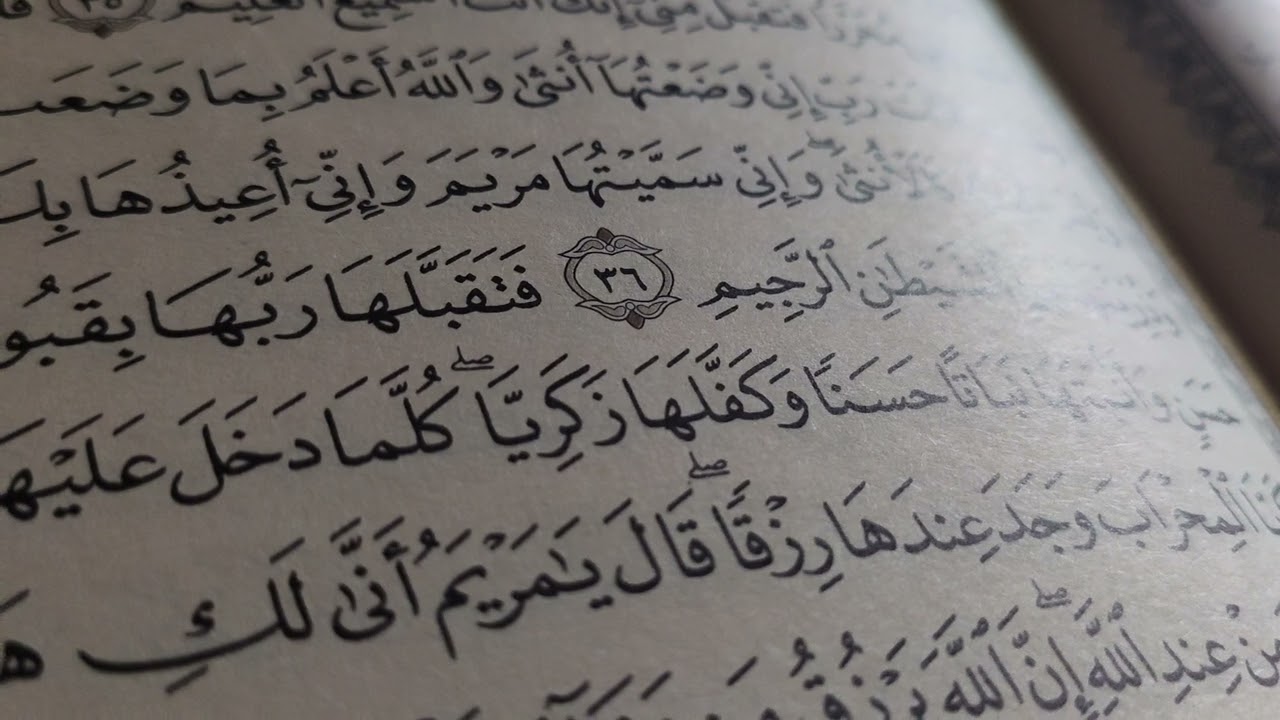 فَتَقَبَّلْ مِنِّيٓ إِنَّكَ أَنتَ ٱلسَّمِيعُ ٱلْعَلِيمُ ٣٥
رَبِّ إِنِّي وَضَعْتُهَآ أُنثَىٰ وَٱللَّهُ أَعْلَمُ بِمَا وَضَعَتْ
كَٱلْأُنثَىٰۖ وَإِنِّي سَمَّيْتُهَا مَرْيَمَ وَإِنِّيٓ أُعِيذُهَا بِكَ
ٱلشَّيْطَٰنِ ٱلرَّجِيمِ ٣٦ فَتَقَبَّلَهَا رَبُّهَا بِقَبُو
حَسَنٍ وَأَنۢبَتَهَا نَبَاتًا حَسَنًا وَكَفَّلَهَا زَكَرِيَّاۖ كُلَّمَا دَخَلَ عَلَيْهَا
ٱلْمِحْرَابَ وَجَدَ عِندَهَا رِزْقًاۖ قَالَ يَٰمَرْيَمُ أَنَّىٰ لَكِ هَ
مِنْ عِندِ ٱللَّهِۖ إِنَّ ٱللَّهَ يَرْزُقُ مَن